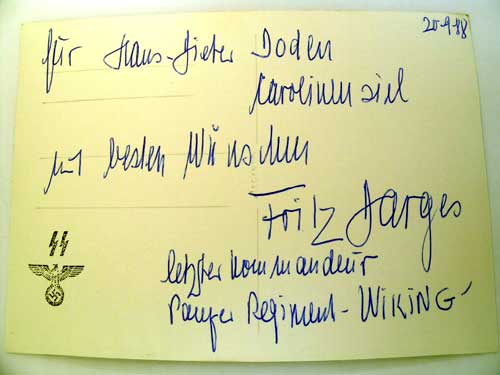 20-9-88
für Hans-Dieter Doden
Carolinensiel
mit besten Wünschen
Fritz Darges
letzter Kommandeur
Panzer Regiment - WIKING